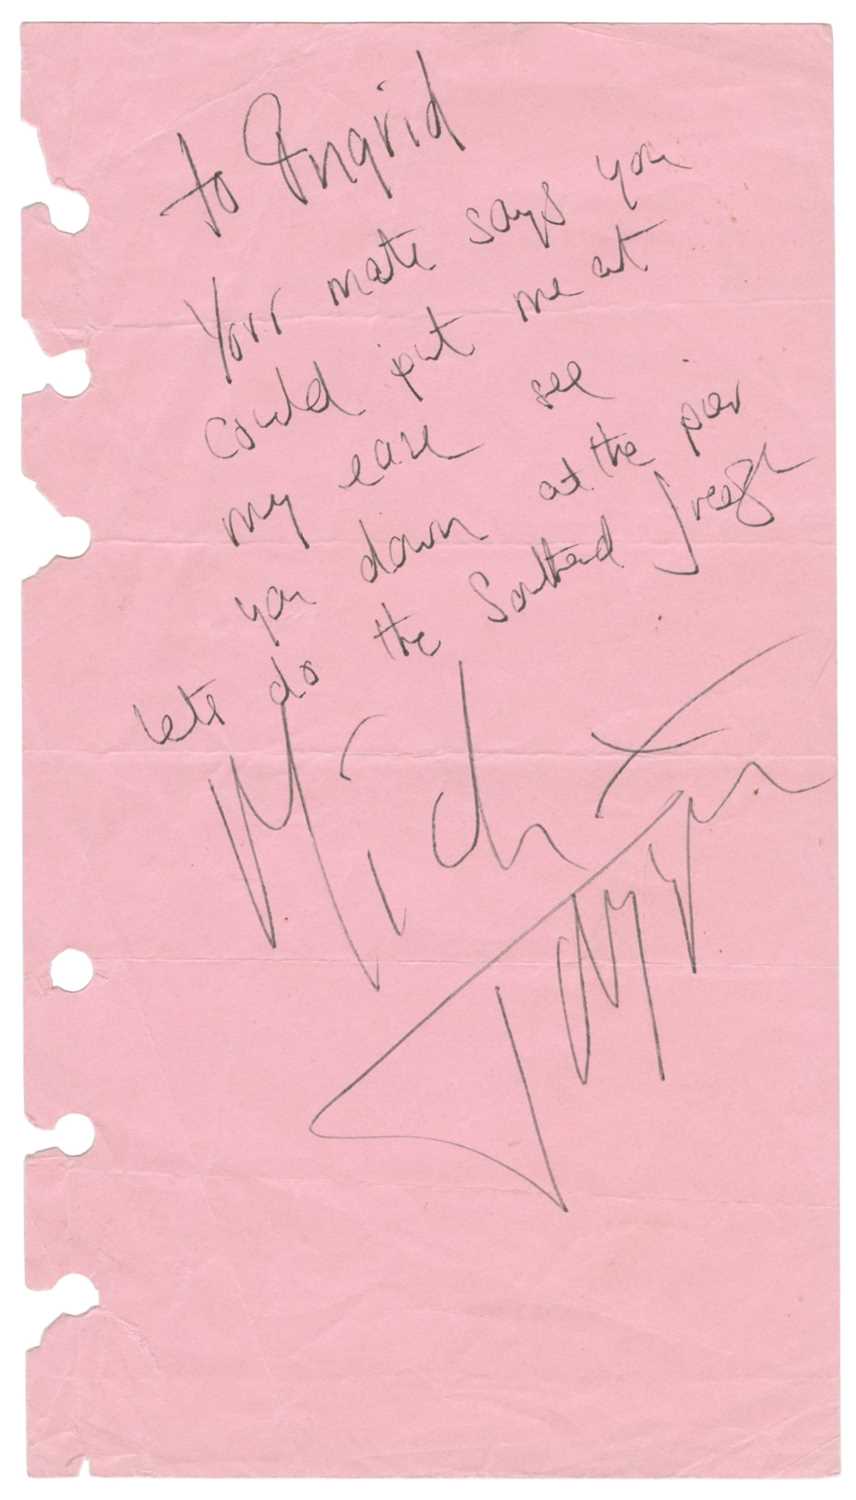 to Ingrid
Your mate says you
could put me at
my ease see
you down at the pier
lets do the Southend
Mick Jagger